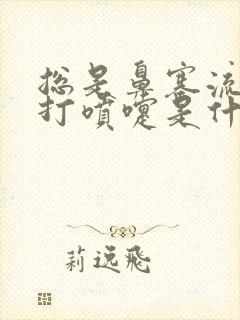 总是鼻塞流
打喷嚏是什
莉远飞